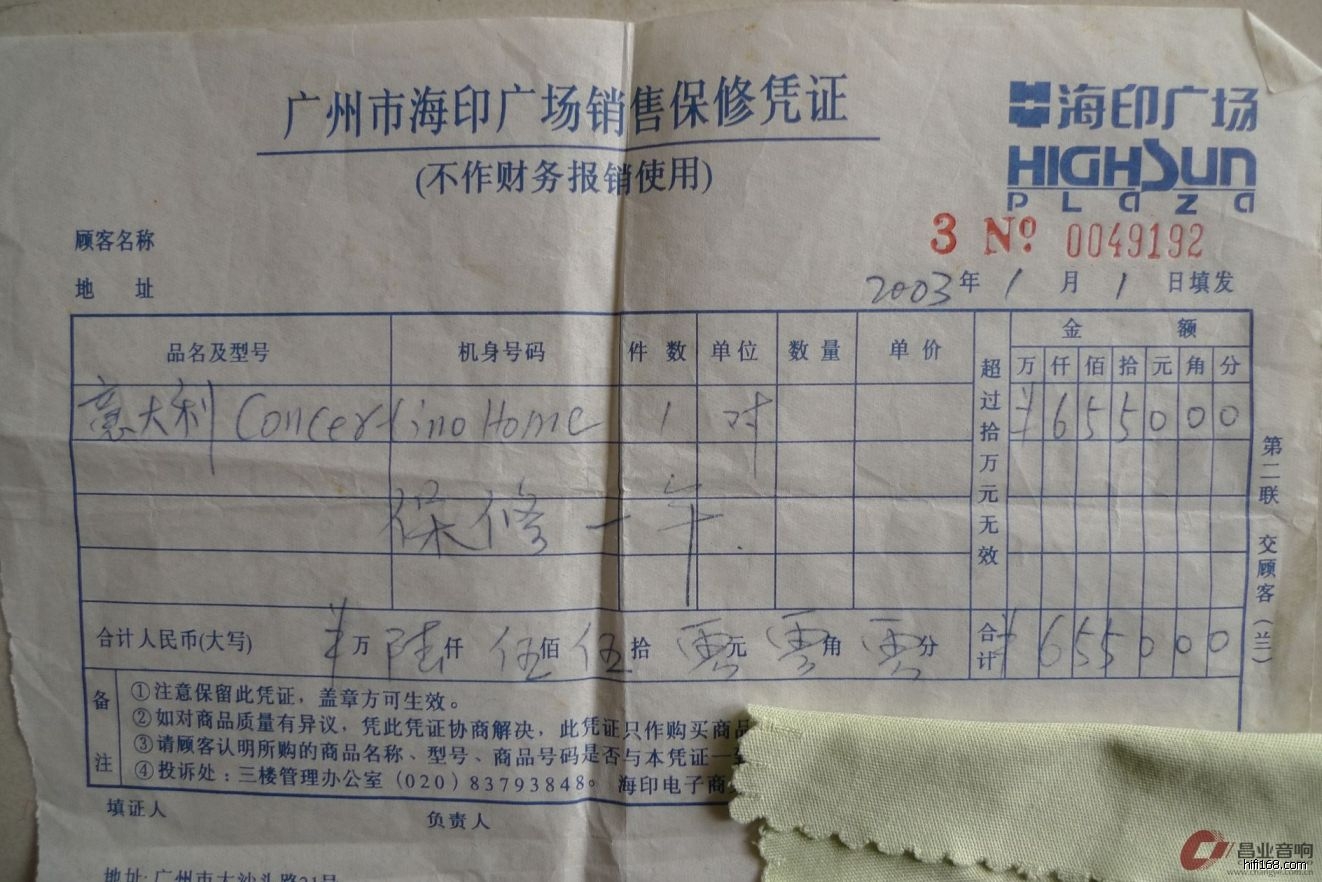 广州市海印广场销售保修凭证
(不作财务报销使用)
海印广场
HIGHSUN
PLAZA
3 Nº 0049192
顾客名称
地 址
2003年 1 月 1 日填发
品名及型号 机身号码 件数 单位 数量 单价 超过拾万元无效 金额
万 仟 佰 拾 元 角 分
意大利 Concertino Home 1 对 ¥ 6 5 5 0 0 0
保修一年
合计人民币(大写) ¥万 陆仟 伍佰 伍拾 零元 零角 零分 合计 ¥ 6 5 5 0 0 0
第二联 交顾客(兰)
备注
①注意保留此凭证，盖章方可生效。
②如对商品质量有异议，凭此凭证协商解决，此凭证只作购买商品
③请顾客认明所购的商品名称、型号、商品号码是否与本凭证一致
④投诉处：三楼管理办公室（020）83793848。 海印电子商
填证人 负责人
地址：广州市大沙头路21号
昌业音响
hifi168.com